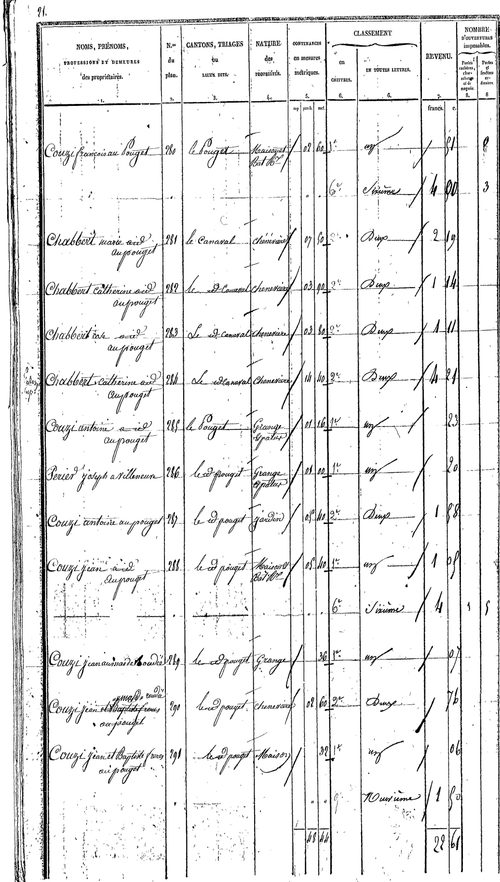 21.
NOMS, PRÉNOMS, PROFESSIONS ET DEMEURES des propriétaires. N.os du plan. CANTONS, TRIAGES ou LIEUX DITS. NATURE des PROPRIÉTÉS. CONTENANCES en mesures métriques. CLASSEMENT en CHIFFRES. EN TOUTES LETTRES. REVENU. NOMBRE D'OUVERTURES imposables.
1. 2. 3. 4. 5. 6. 6. 7. 8. 8
francs. c.
Couzi françois au Pouget 280 le Pouget Maison et Bat R.al 02 60 1re un 1 51 8
6e Sixième 4 90 3
Chabbert marie aud au pouget 281 le Canaval chenevière 07 2e Deux 2 19
Chabbert Catherine aud au pouget 282 le id canaval chenevière 03 90 2e Deux 1 14
Chabbert aud au pouget 283 Le id canaval chenevière 03 80 2e Deux 1 11
Chabbert Catherine aud au pouget 284 Le id canaval Chenevière 14 40 2e Deux 4 21
Couzi antoine aud au pouget 285 le Pouget Grange et patus 01 16 1re un 23
Perier joseph a villeneuve 286 le id pouget Grange et patus 01 00 1re un 20
Couzi antoine au pouget 287 le id pouget jardin 05 40 2e Deux 1 58
Couzi jean aud au pouget 288 le id pouget Maison et Bat R.al 05 40 1re un 1 05
6e Sixième 4 1 5
Couzi jean 289 le id pouget Grange 36 1re un 07
Couzi jean et Baptiste freres au pouget 290 le id pouget chenevière 02 60 2e Deux 76
Couzi jean et Baptiste freres au pouget 291 le id pouget Maison 32 1re un 06
9 Neuvième 1 50
48 44 22 61